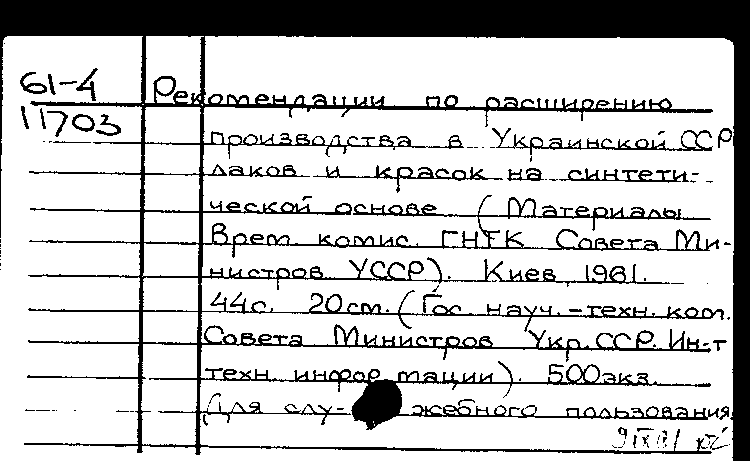 61-4 Рекомендации по расширению
11703 производства в Украинской ССР
лаков и красок на синтети-
ческой основе (Материалы
Врем. комис. ГНТК Совета Ми-
нистров УССР). Киев, 1961.
44с. 20см. (Гос. науч.-техн. ком.
Совета Министров Укр. ССР. Ин-т
техн. информации). 500экз.
Для слу- жебного пользования